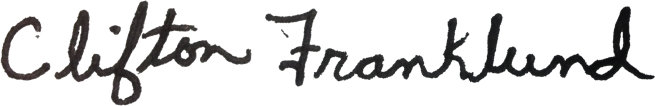 Clifton Franklund